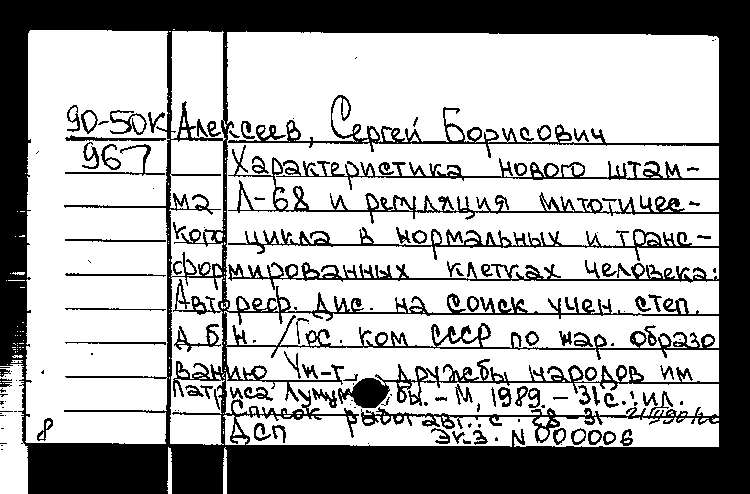 90-50к Алексеев, Сергей Борисович
967 Характеристика нового штам-
ма Л-68 и регуляция митотичес-
кого цикла в нормальных и транс-
формированных клетках человека:
Автореф. дис. на соиск. учен. степ.
д.б.н. / Гос. ком СССР по нар. образо
ванию Ун-т дружбы народов им.
Патриса Лумум бы. - М, 1989. - 31с.: ил.
Список работ авт.: с. 28-31
8 ДСП Экз. N 000006